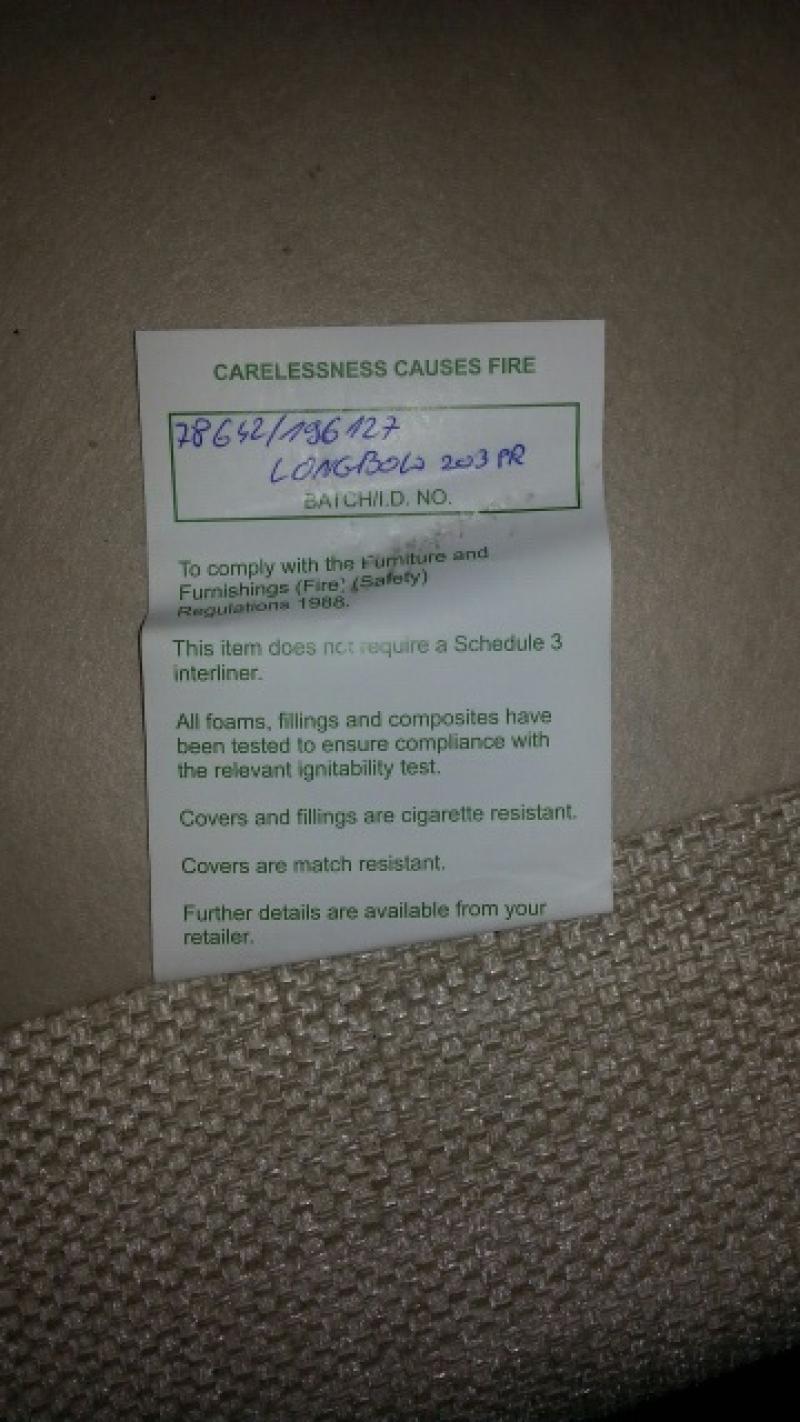 CARELESSNESS CAUSES FIRE
78642/196127
LONGBOW 203 PR
BATCH/I.D. NO.
To comply with the Furniture and
Furnishings (Fire) (Safety)
Regulations 1988.
This item does not require a Schedule 3
interliner.
All foams, fillings and composites have
been tested to ensure compliance with
the relevant ignitability test.
Covers and fillings are cigarette resistant.
Covers are match resistant.
Further details are available from your
retailer.